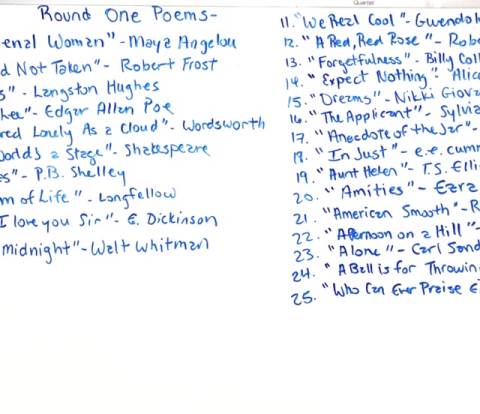 Quartet
Round One Poems-
enal Woman" - Maya Angelou
d Not Taken" - Robert Frost
s" - Langston Hughes
- Edgar Allan Poe
red Lonely As a Cloud" - Wordsworth
a Stage" - Shakespeare
es" - P.B. Shelley
m of Life" - Longfellow
I love you Sir" - E. Dickinson
midnight" - Walt Whitman
11. "We Real Cool" - Gwendol
12. "A Red, Red Rose" - Robe
13. "Forgetfulness" - Billy Coll
14. "Expect Nothing" - Alic
15. "Dreams" - Nikki Giova
16. "The Applicant" - Sylvia
17. "Anecdote of the Jar" -
18. "In Just" - e.e. cumm
19. "Aunt Helen" - T.S. Elli
20. "Amities" - Ezra
21. "American Smooth" - R
22. "Afternoon on a Hill" -
23. "Alone" - Carl Sand
24. "A Bell is for Throwin
25. "Who Can Ever Praise E